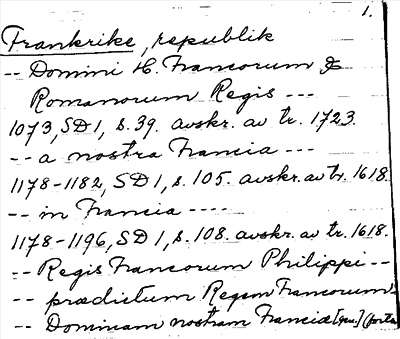 1.
Frankrike, republik
-- Domini H. Francorum &
Romanorum Regis ---
1073, SD 1, s. 39. avskr. av tr. 1723.
-- a nostra Francia ---
1178-1182, SD 1, s. 105. avskr. av tr. 1618.
-- in Francia ----
1178-1196, SD 1, s. 108. avskr. av tr. 1618.
-- Regis Francorum Philippi --
-- prædictum Regem Francorum -
-- Dominam nostram Franciæ [gen.] (forts.